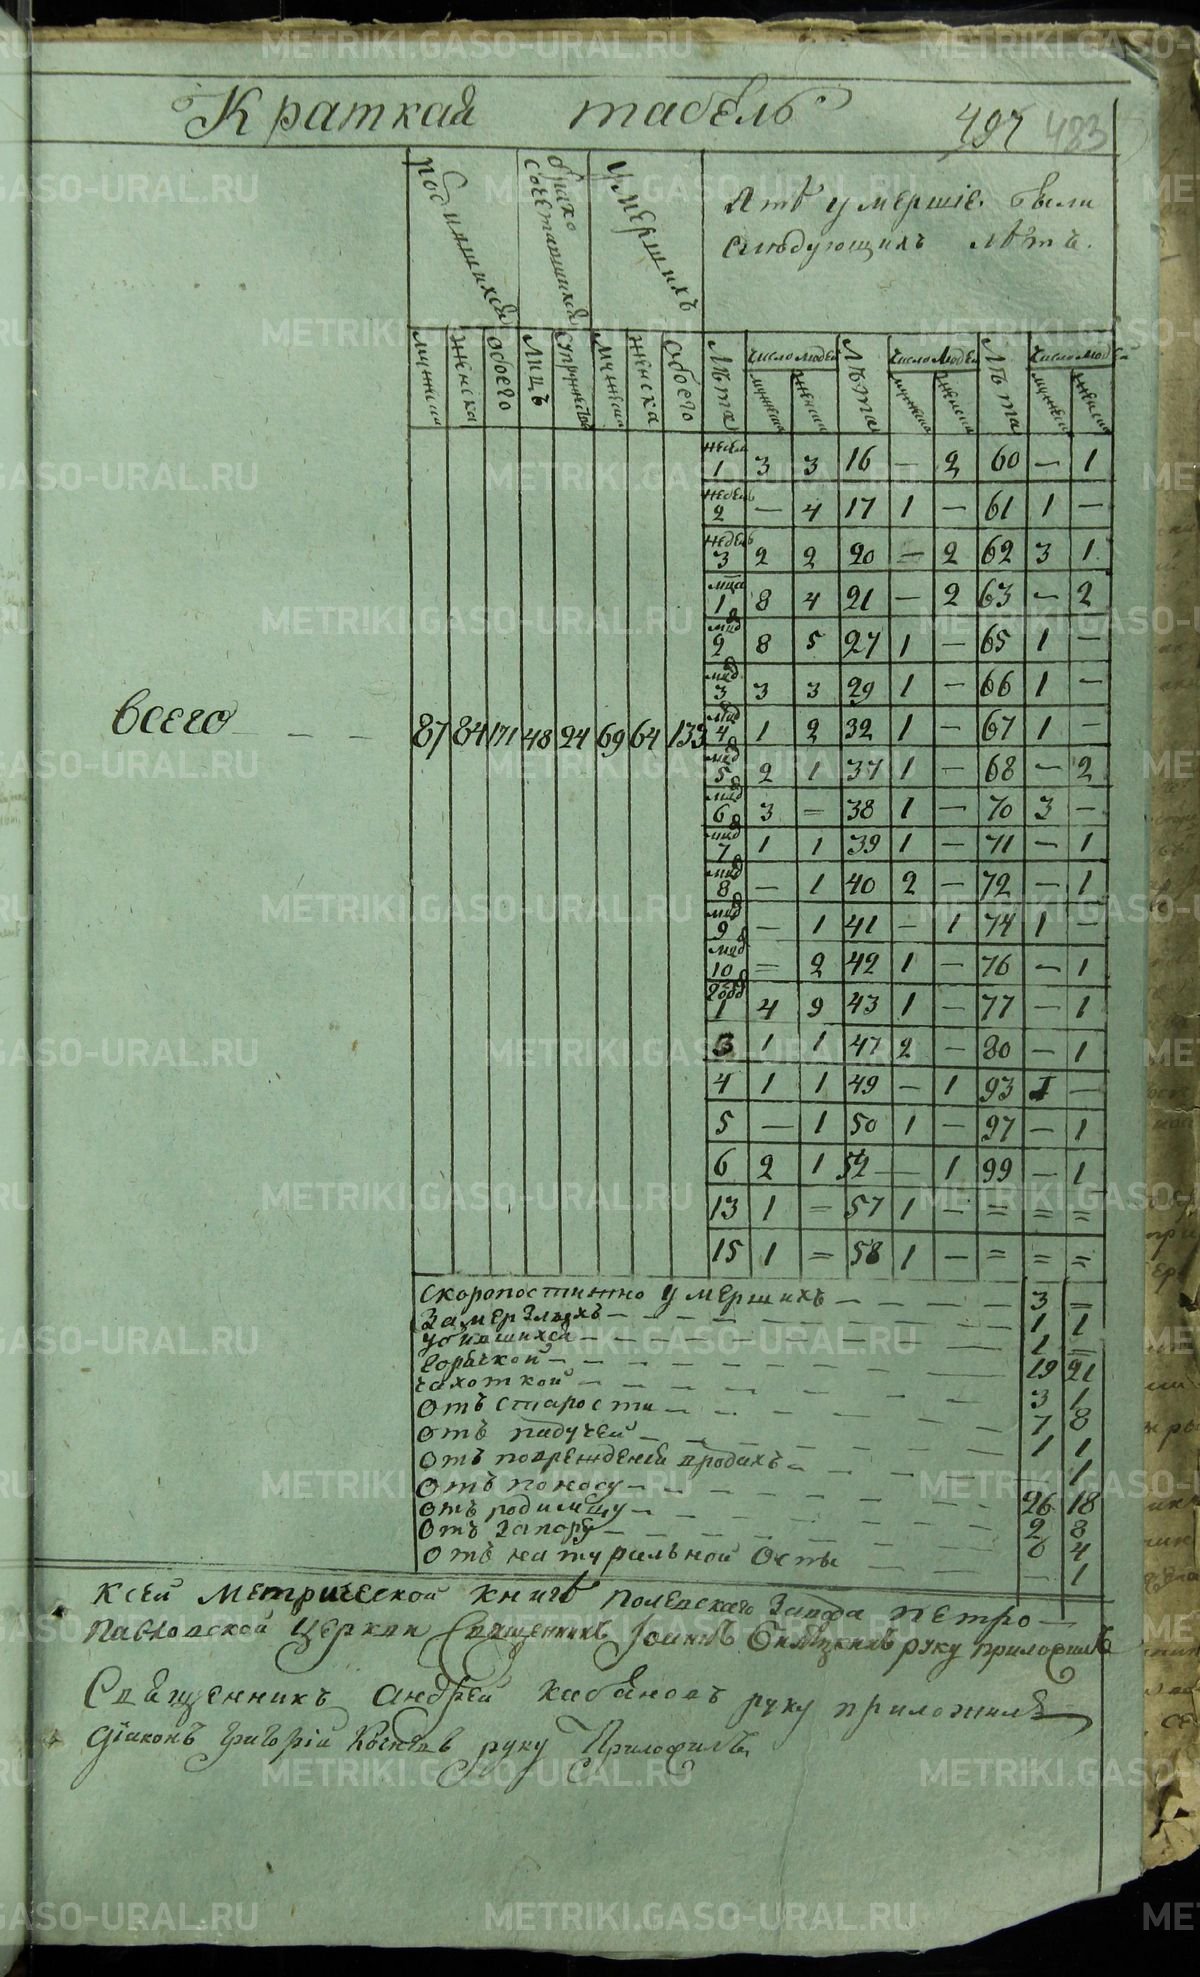 Краткая табель
497 483
родившихся
брако сочетавшихся
умершихъ
Лѣтъ умершіе были
слѣдующихъ лѣтъ.
мужеска женска обоего лицъ супружествъ мужеска женска обоего Лѣта число людей Лѣта число людей Лѣта число людей
мужеска женска мужеска женска мужеска женска
недели 1 3 3 16 — 2 60 — 1
недель 2 — 4 17 1 — 61 1 —
недель 3 2 2 20 — 2 62 3 1
мца 1 8 4 21 — 2 63 — 2
2 8 5 27 1 — 65 1 —
3 3 3 29 1 — 66 1 —
всего — — — 87 84 171 48 24 69 64 133
4 1 2 32 1 — 67 1 —
5 2 1 37 1 — 68 — 2
6 3 = 38 1 — 70 3 —
7 1 1 39 1 — 71 — 1
8 — 1 40 2 — 72 — 1
9 — 1 41 — 1 74 1 —
10 = 2 42 1 — 76 — 1
1 4 9 43 1 — 77 — 1
3 1 1 47 2 — 80 — 1
4 1 1 49 — 1 93 1 —
5 — 1 50 1 — 97 — 1
6 2 1 52 — 1 99 — 1
13 1 = 57 1 — = = =
15 1 = 58 1 — = = =
скоропостижно умершихъ — — — — 3 =
Замерзлыхъ — — — — 1 1
убившихся — — — — 1 =
горячкой — — — — 19 21
чахоткой — — — — 3 1
отъ старости — — — — 7 8
отъ падучей — — — — 1 1
отъ поврежденій въ родахъ — — — 1
отъ поносу — — — — 26 18
отъ родимцу — — — — 2 8
отъ запору — — — — 6 4
отъ натуральной оспы — — — 1
К сей метрической книгѣ Полевскаго Завода Петро—
Павловской церкви Священникъ Іоаннъ руку приложилъ
Священникъ Андрей Кабановъ руку приложилъ
Діаконъ Григорій руку Приложилъ
METRIKI.GASO-URAL.RU